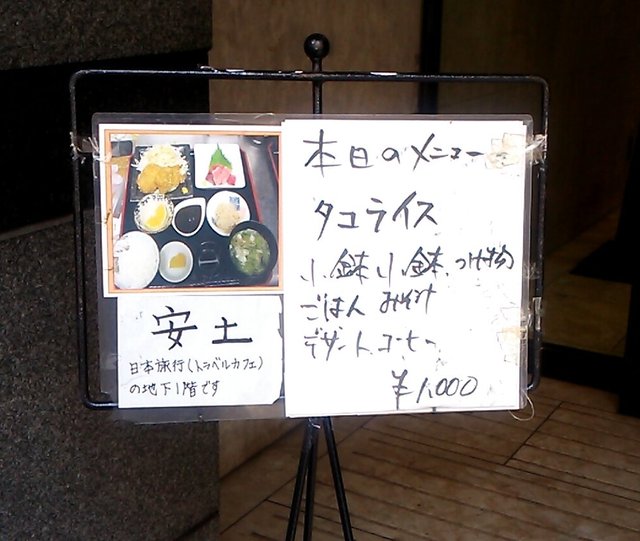 本日のメニュー
タコライス
小鉢 小鉢 つけ物
ごはん みそ汁
デザート コーヒー
¥1,000
安土
日本旅行(トラベルカフェ)
の地下1階です